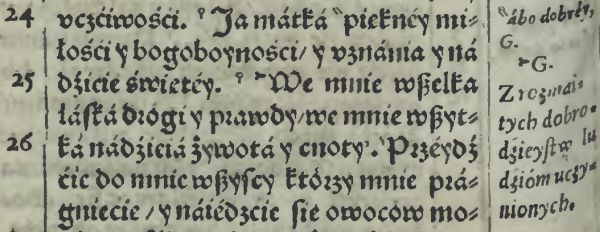 24 vczćiwośći. ° Ja mátká "piękney mi-
łośći y bogoboynośći/ y vznánia y ná
25 dźieie świetéy. ° ~We mnie wßelka
láſká drógi y prawdy/we mnie wßyt-
26 ká nádźieiá żywotá y cnoty'. Przéydź
ćie do mnie wßyſcy którzy mnie prá-
gniecie / y náiédzcie ſie owoców mo-
"ábo dobréy,
G.
~G.
Z rozmai-
tych dobro-
dźieyſtw lu
dźióm uczy-
nionych.